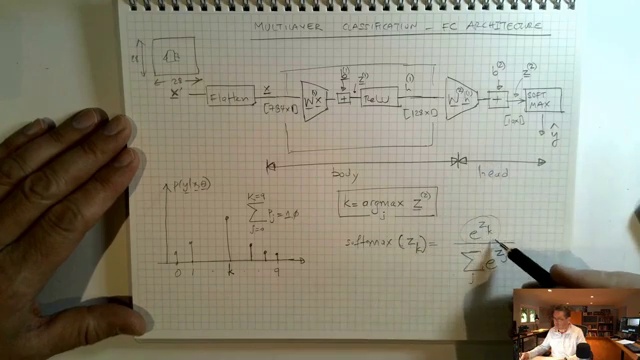 MULTILAYER CLASSIFICATION - FC ARCHITECTURE
28
28
X
Flatten
x
[784x1]
W⁽¹⁾x
b⁽¹⁾
+
z⁽¹⁾
ReLU
h⁽¹⁾
[128x1]
W⁽²⁾h⁽¹⁾
b⁽²⁾
+
z⁽²⁾
[10x1]
SOFT
MAX
ŷ
body
head
p(y|x,θ)
K=9
∑ Pj = 1.0
j=0
0 1 k 9
k = argmax z⁽²⁾
j
softmax (zk) =
e^zk
∑ e^zj
j